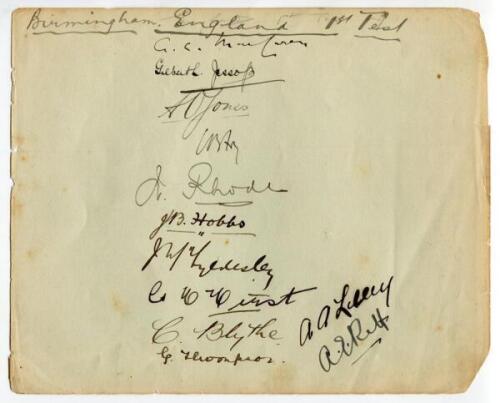 Birmingham. England 1st Test
A. C. MacLaren
Gilbert L. Jessop
A O Jones
W. Rhodes
J B. Hobbs
J T Tyldesley
G H Hirst
A A Lilley
C. Blythe
A. E. Relf
G. Thompson.